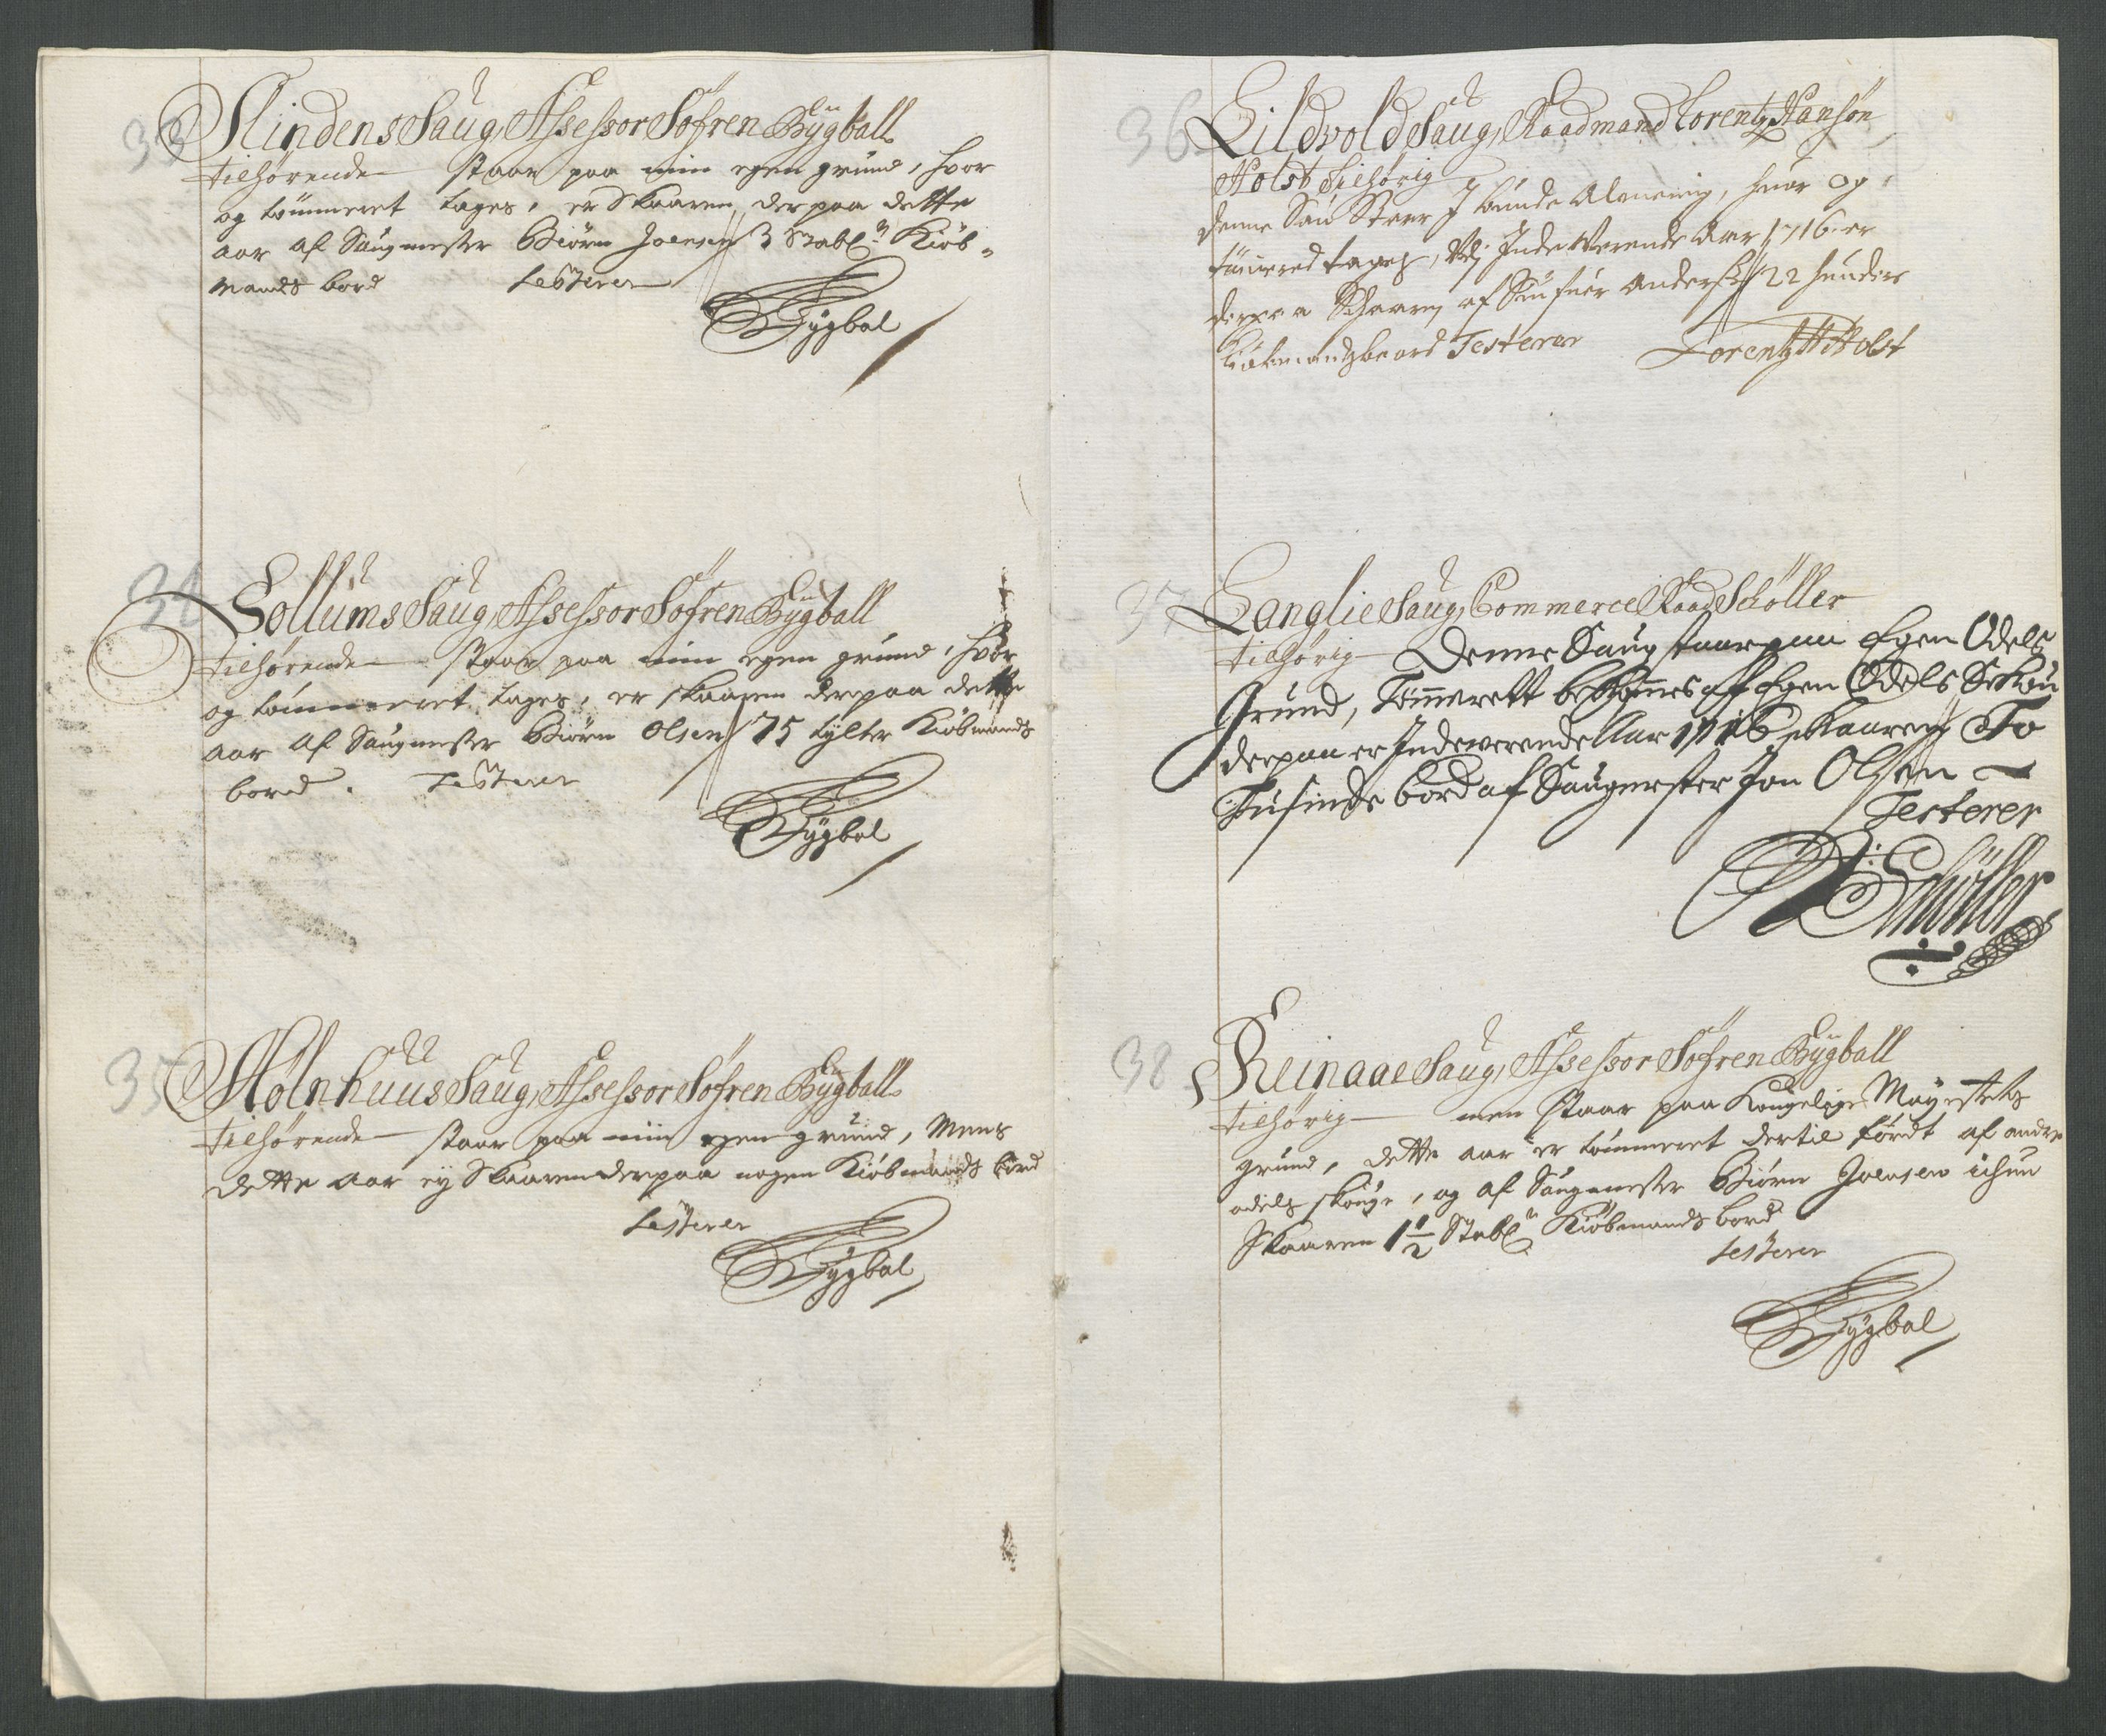 33
Flindens Saug, Assessor Søfren Bÿgball
tilhørende staar paa min egen grund, hvor
og tømmeret tages, er Skaaren derpaa dette
aar af Saugmester Biørn Joensen 3 Stabl. Kiøb-
mands bord Testerer
Bÿgbal
34
Sollums Saug, Assessor Søfren Bÿgball
tilhørende staar paa min egen grund, hvor
og tømmeret tages, er skaaren derpaa dette
aar af Saugmester Biørn Olsen 75 tylter Kiøbmands
bord. Testerer
Bÿgbal
35
Mølnhuus Saug, Assessor Søfren Bÿgball
tilhørende staar paa miin egen grund, Mens
dette aar eÿ Skaaren derpaa nogen Kiøbmands bord
Testerer
Bÿgbal
36
Lildvold Saug, Raadmand Lorentz Hansøn
Holst Tilhørig
denne Sau Staar I bunde Almening, huor og
tages, Indeværende Aar 1716 er
derpaa af Anders 22 hunder
Kiøbmandsbord Testerer Lorentz H Holst
37
Langlie Saug, Commerce Raad Schøller
tilhørig Denne Saug staar paa Egen Odels
Grund, Tømmerett bekommes aff Egen Odels Skou
derpaa er Indeverende Aar 1716 skaaren To
Tusinde bord af Saugmester Jon Olsen
Testerer
Schøller
38
Reinaae Saug, Assessor Søfren Bÿgball
tilhørig men staar paa Kongelige Maÿestets
grund, dette aar er tømmeret dertil førdt af andre
odels skouge, og af Saugmester Biørn Joensen ichun
Skaaren 1 1/2 Stabl. Kiøbmands bord
Testerer
Bÿgbal